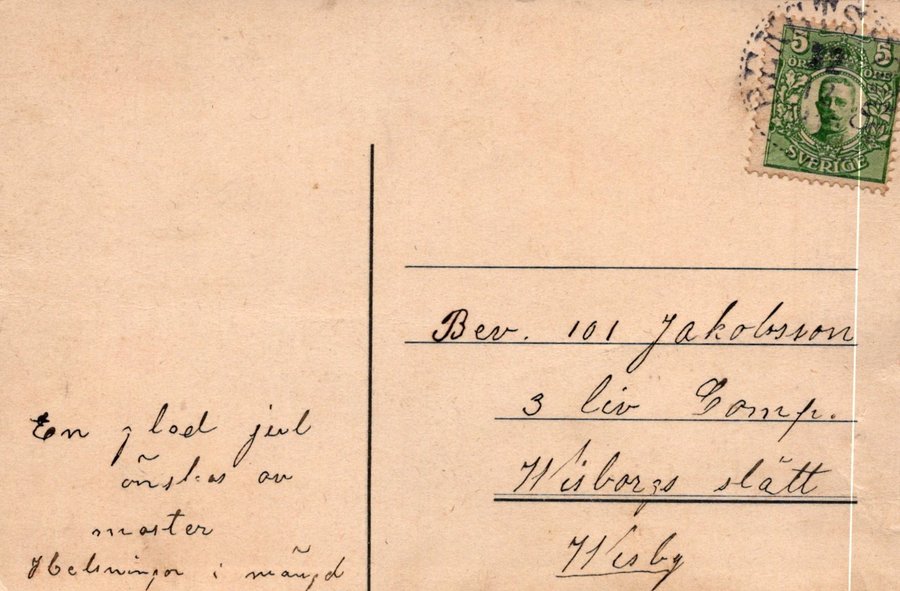 5 5
ÖRE ÖRE
SVERIGE
Bev. 101 Jakobsson
3 liv Comp.
Wisborgs slätt
Wisby
En glad jul
önskas av
moster
Helsningar i mängd